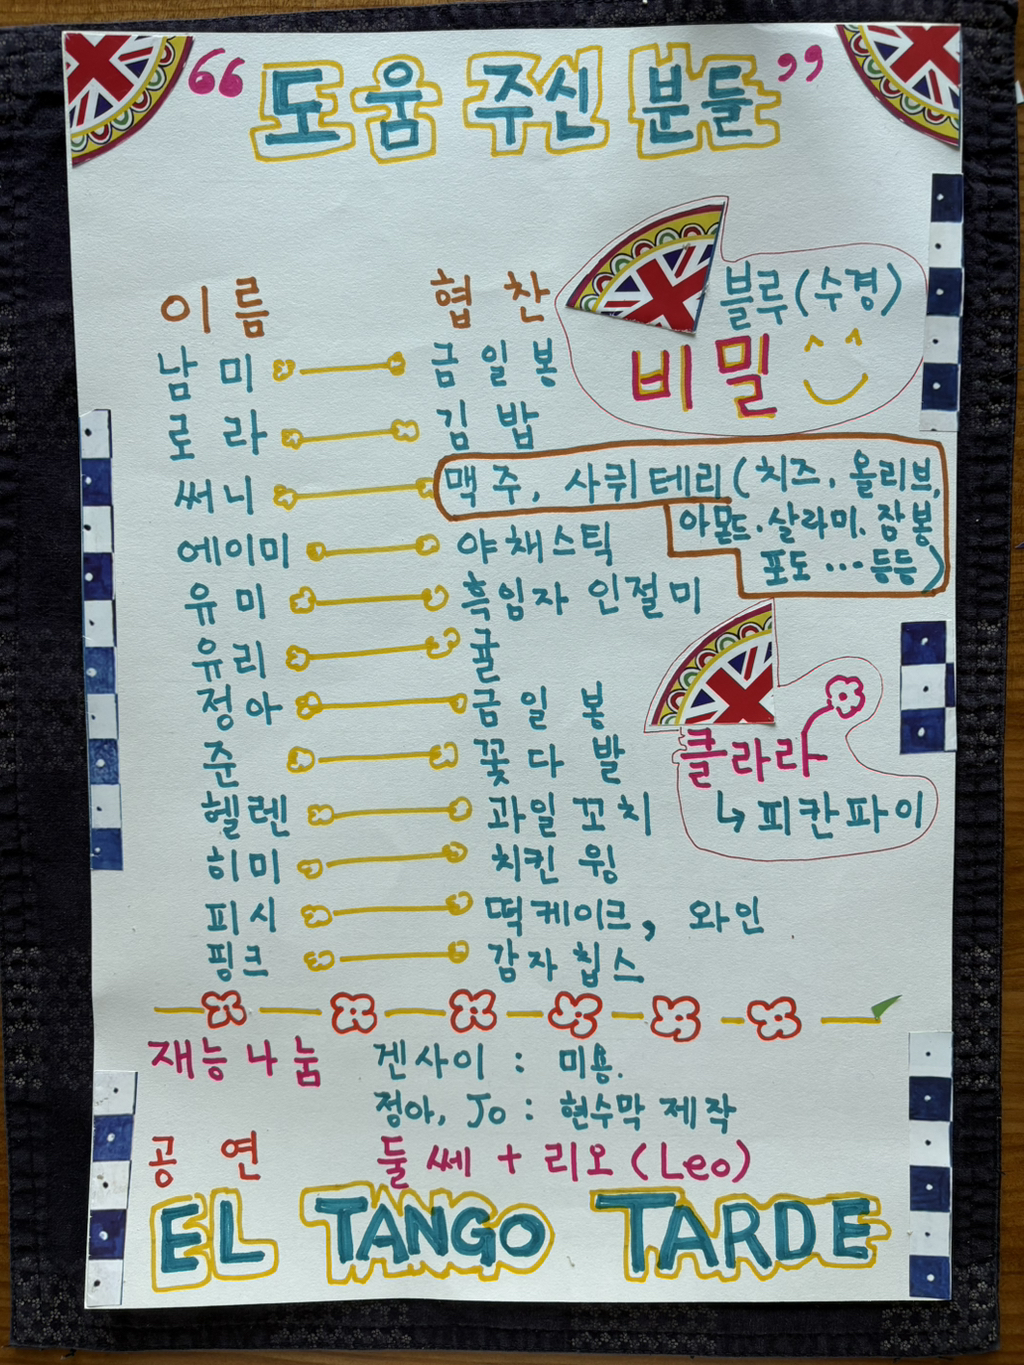 “도움 주신 분들”
이름 협찬
블루(수경)
비밀
남미 금일봉
로라 김밥
써니 맥주, 사퀴테리(치즈, 올리브,
아몬드.살라미.잠봉
포도…등등)
에이미 야채스틱
유미 흑임자 인절미
유리 귤
정아 금일봉
준 꽃다발
클라라
↳피칸파이
헬렌 과일꼬치
히미 치킨윙
피시 떡케이크, 와인
핑크 감자칩스
재능나눔 겐사이 : 미용.
정아, Jo : 현수막 제작
공연 둘쎄 + 리오(Leo)
EL TANGO TARDE